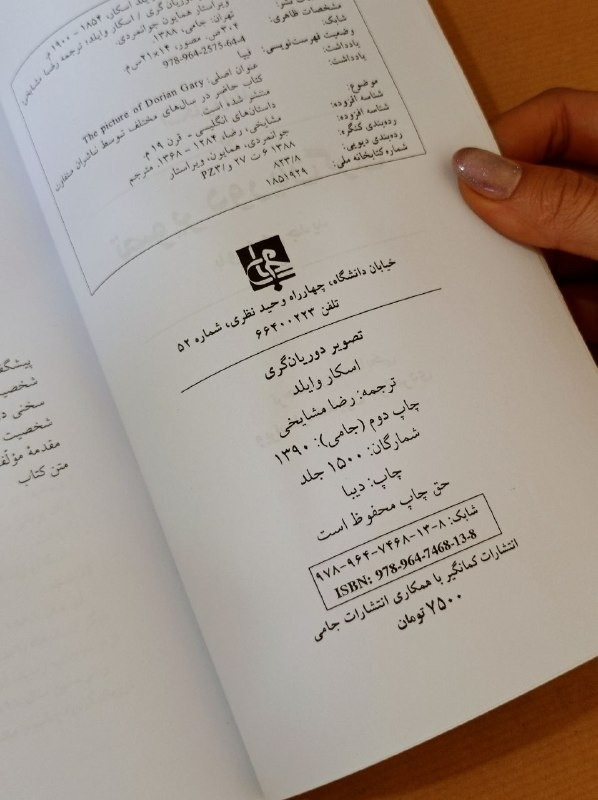 وایلد، اسکار، ۱۸۵۴ - ۱۹۰۰م.
دوریان گری / اسکار وایلد، ترجمه رضا مشایخی
ویراستار همایون جوانمردی.
تهران: جامی، ۱۳۸۸.
مشخصات ظاهری: ۳۰۴ ص. مصور، ۱۴×۲۱س‌م.
شابک: 978-964-2575-64-4
وضعیت فهرست‌نویسی: فیپا
یادداشت: عنوان اصلی: The picture of Dorian Gary
یادداشت: کتاب حاضر در سال‌های مختلف توسط ناشران متفاوت
منتشر شده است.
موضوع: داستان‌های انگلیسی - قرن ۱۹م.
شناسه افزوده: مشایخی، رضا، ۱۲۸۴ - ۱۳۶۸. مترجم
شناسه افزوده: جوانمردی، همایون، ویراستار
رده‌بندی کنگره: ۱۳۸۸ ۶ ت ۲۷ و/PZ۳
رده‌بندی دیویی: ۸۲۳/۸
شماره کتابخانه ملی: ۱۸۵۱۹۲۹
خیابان دانشگاه، چهارراه وحید نظری، شماره ۵۲
تلفن ۶۶۴۰۰۲۲۳
تصویر دوریان‌گری
اسکار وایلد
ترجمه: رضا مشایخی
چاپ دوم (جامی): ۱۳۹۰
شمارگان: ۱۵۰۰ جلد
چاپ: دیبا
حق چاپ محفوظ است
شابک: ۸-۱۳-۷۴۶۸-۹۶۴-۹۷۸
ISBN: 978-964-7468-13-8
انتشارات کمانگیر با همکاری انتشارات جامی
۷۵۰۰ تومان
سخنی
شخصیت
مقدمهٔ
متن کتاب